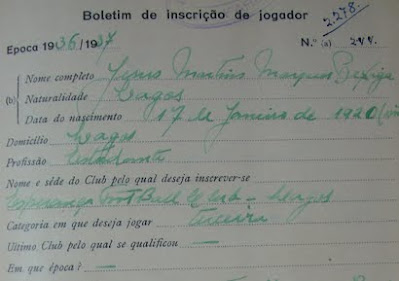 Boletim de inscrição de jogador
2.278.
Epoca 1936/1937
N.º (a) 244.
Nome completo Martins Marques
(b) Naturalidade Lagos
Data do nascimento 17 de Janeiro de 1920
Domicílio Lagos
Profissão Estudante
Nome e séde do Club pelo qual deseja inscrever-se
Esperança Foot Ball Club - Lagos
Categoria em que deseja jogar terceira
Ultimo Club pelo qual se qualificou —
Em que época? —